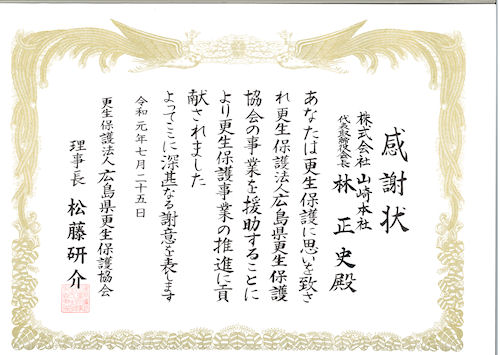 感謝状
株式会社 山崎本社
代表取締役会長 林正史殿
あなたは更生保護に思いを致さ
れ更生保護法人広島県更生保護
協会の事業を援助することに
より更生保護事業の推進に貢
献されました
よってここに深甚なる謝意を表します
令和元年七月二十五日
更生保護法人広島県更生保護協会
理事長 松藤研介